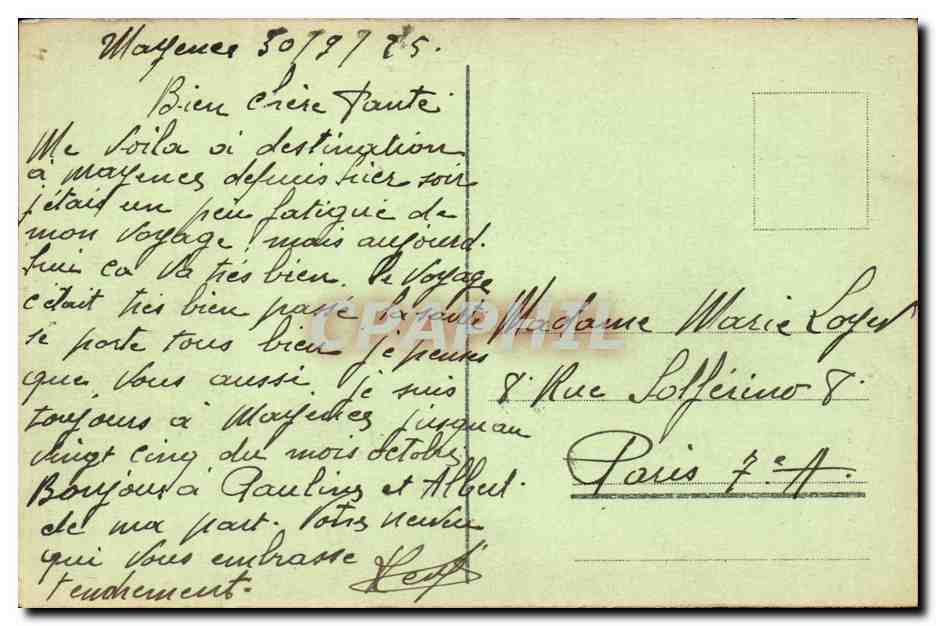 Mayence 30/9/25.
Bien chère tante
Me voila à destination
à Mayence depuis hier soir
j'étais un peu fatigué de
mon voyage, mais aujourd.
hui ca va très bien. Le voyage
c'était très bien passé la santé
se porte tous bien je penses
que vous aussi je suis
toujours à Mayence jusquau
vingt cinq du mois octobre
Bonjour à Pauline et Albert.
de ma part. Votre neveu
qui vous embrasse
tendrement.
CPAPHIL
Madame Marie Loyer
8 Rue Solférino 8
Paris 7e A.